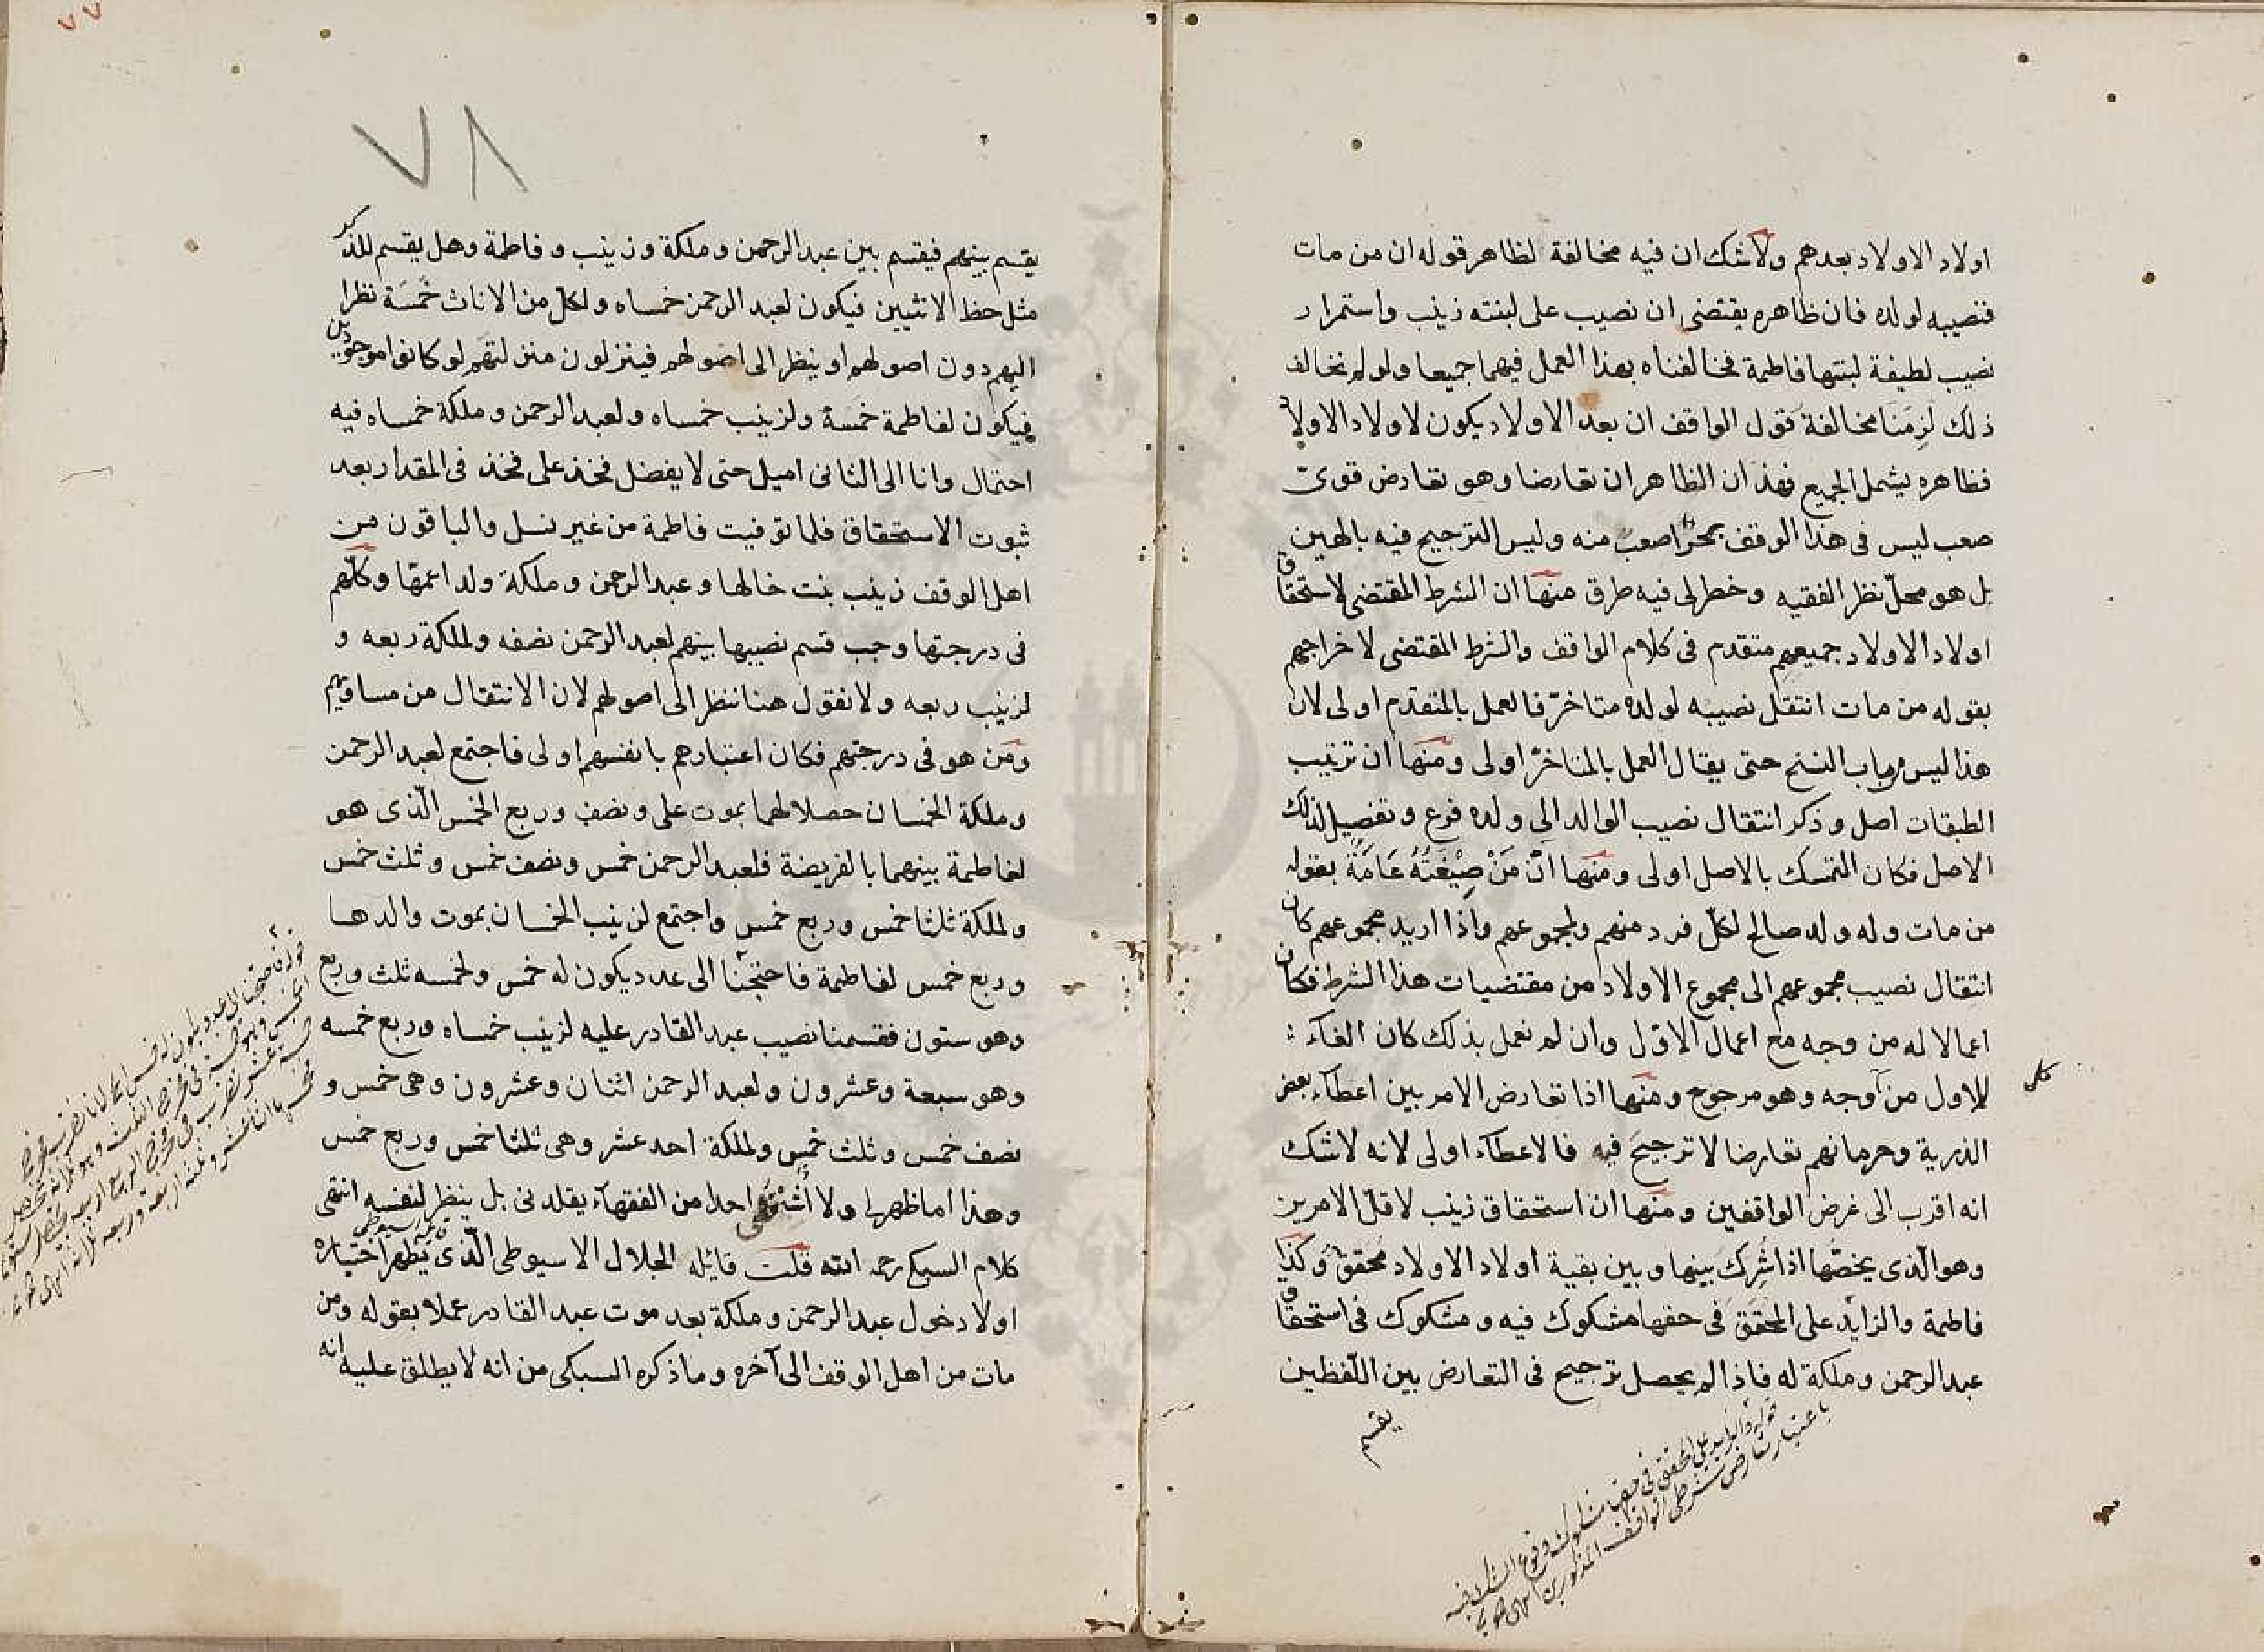 اولاد الاولاد بعدهم ولاشك ان فيه مخالفة لظاهر قوله ان من مات
فنصيبه لولده فان ظاهره يقتضى ان نصيب على لبنته زينب واستمرار
نصيب لطيفة لبنتها فاطمة فخالفناه بهذا العمل فيهما جميعا ولو لم نخالف
ذلك لزمنا مخالفة قول الواقف ان بعد الاولاد يكون لاولاد الاولاد
فظاهره يشمل الجميع فهذان الظاهران تعارضا وهو تعارض قوىّ
صعب ليس فى هذا الوقف محزّا صعب منه وليس الترجيح فيه بالهين
بل هو محلّ نظر الفقيه وخطر لى فيه طرق منها ان الشرط المقتضى لاستحقاق
اولاد الاولاد جميعهم متقدم فى كلام الواقف والشرط المقتضى لاخراجهم
بقوله من مات انتقل نصيبه لولده متاخرّ فالعمل بالمتقدم اولى لان
هذا ليس من باب النسخ حتى يقال العمل بالمتاخرّ اولى ومنها ان ترتيب
الطبقات اصل وذكر انتقال نصيب الوالد الى ولده فرع وتفصيل لذلك
الاصل فكان التمسك بالاصل اولى ومنها انّ مَنْ صِيْغَتُهُ عَامَّةٌ بقوله
من مات وله ولد صالح لكلّ فرد منهم ولمجموعهم واذا اريد مجموعهم كان
انتقال نصيب مجموعهم الى مجموع الاولاد من مقتضيات هذا الشرط فكان
اعمالا له من وجه مع اعمال الاوّل وان لم نعمل بذلك كان الغآء
للاول من وجه وهو مرجوح ومنها اذا تعارض الامر بين اعطآء بعض
الذرية وحرمانهم تعارضا لا ترجيحَ فيه فالاعطآء اولى لانه لاشك
انه اقرب الى غرض الواقفين ومنها ان استحقاق زينب لاقلّ الامرين
وهو الّذى يخصّها اذا شُرِكَ بينها وبين بقية اولاد الاولاد مُحَقَقٌ وكذا
فاطمة والزايد على المحقق فى حقها مشكوك فيه ومشكوك فى استحقاق
عبد الرحمن وملكة له فاذا لم يحصل ترجيح فى التعارض بين اللّفظين
يقسم
قوله والزايد على المحقق فى حقها مشكوك وقوع الشك فيه
باعتبار تعارض شرطى الواقف المذكورين
٧٧
٧٨
يقسم بينهم فيقسم بين عبد الرحمن وملكة وزينب وفاطمة وهل يقسم للذكر
مثل حظ الانثيين فيكون لعبد الرحمن خمساه ولكلّ من الاناث خُمسَهُ نظرا
اليهم دون اصولهم او ينظر الى اصولهم فينزلون منزلتهم لو كانوا موجودين
فيكون لفاطمة خمسهُ ولزينب خمساه ولعبد الرحمن وملكة خمساه فيه
احتمال وانا الى الثانى اميل حتى لا يفضل فخذ على فخذ فى المقدار بعد
ثبوت الاستحقاق فلما توفيت فاطمة من غير نسل والباقون من
اهل الوقف زينب بنت خالها وعبد الرحمن وملكة ولدا عمتها وكلّهم
فى درجتها وجب قسم نصيبها بينهم لعبد الرحمن نصفه ولملكة ربعه و
لزينب ربعه ولا نقول هنا ننظر الى اصولهم لان الانتقال من مساويهم
ومن هو فى درجتهم فكان اعتبارهم بانفسهم اولى فاجتمع لعبد الرحمن
وملكة الخمسان حصلا لهما بموت على ونصف وربع الخمس الّذى هو
لفاطمة بينهما بالفريضة فلعبد الرحمن خمس ونصف خمس وثلث خمس
ولملكة ثلثا خمس وربع خمس واجتمع لزينب الخمسان بموت والدها
وربع خمس لفاطمة فاحتجنا الى عدد يكون له خمس ولخمسه ثلث وربع
وهو ستون فقسمنا نصيب عبد القادر عليه لزينب خمساه وربع خمسه
وهو سبعة وعشرون ولعبد الرحمن اثنان وعشرون وهى خمس و
نصف خمس وثلث خمس ولملكة احد عشر وهى ثلثا خمس وربع خمس
وهذا ما ظهر لى ولا اشتهى احدا من الفقهآء يقلدنى بل ينظر لنفسه انتهى
كلام السبكى رحمه الله قلت قائله الجلال الاسيوطى الّذى يظهر اختياره
اولا دخول عبد الرحمن وملكة بعد موت عبد القادر عملا بقوله ومن
مات من اهل الوقف الى آخره وما ذكره السبكى من انه لا يطلق عليه انه